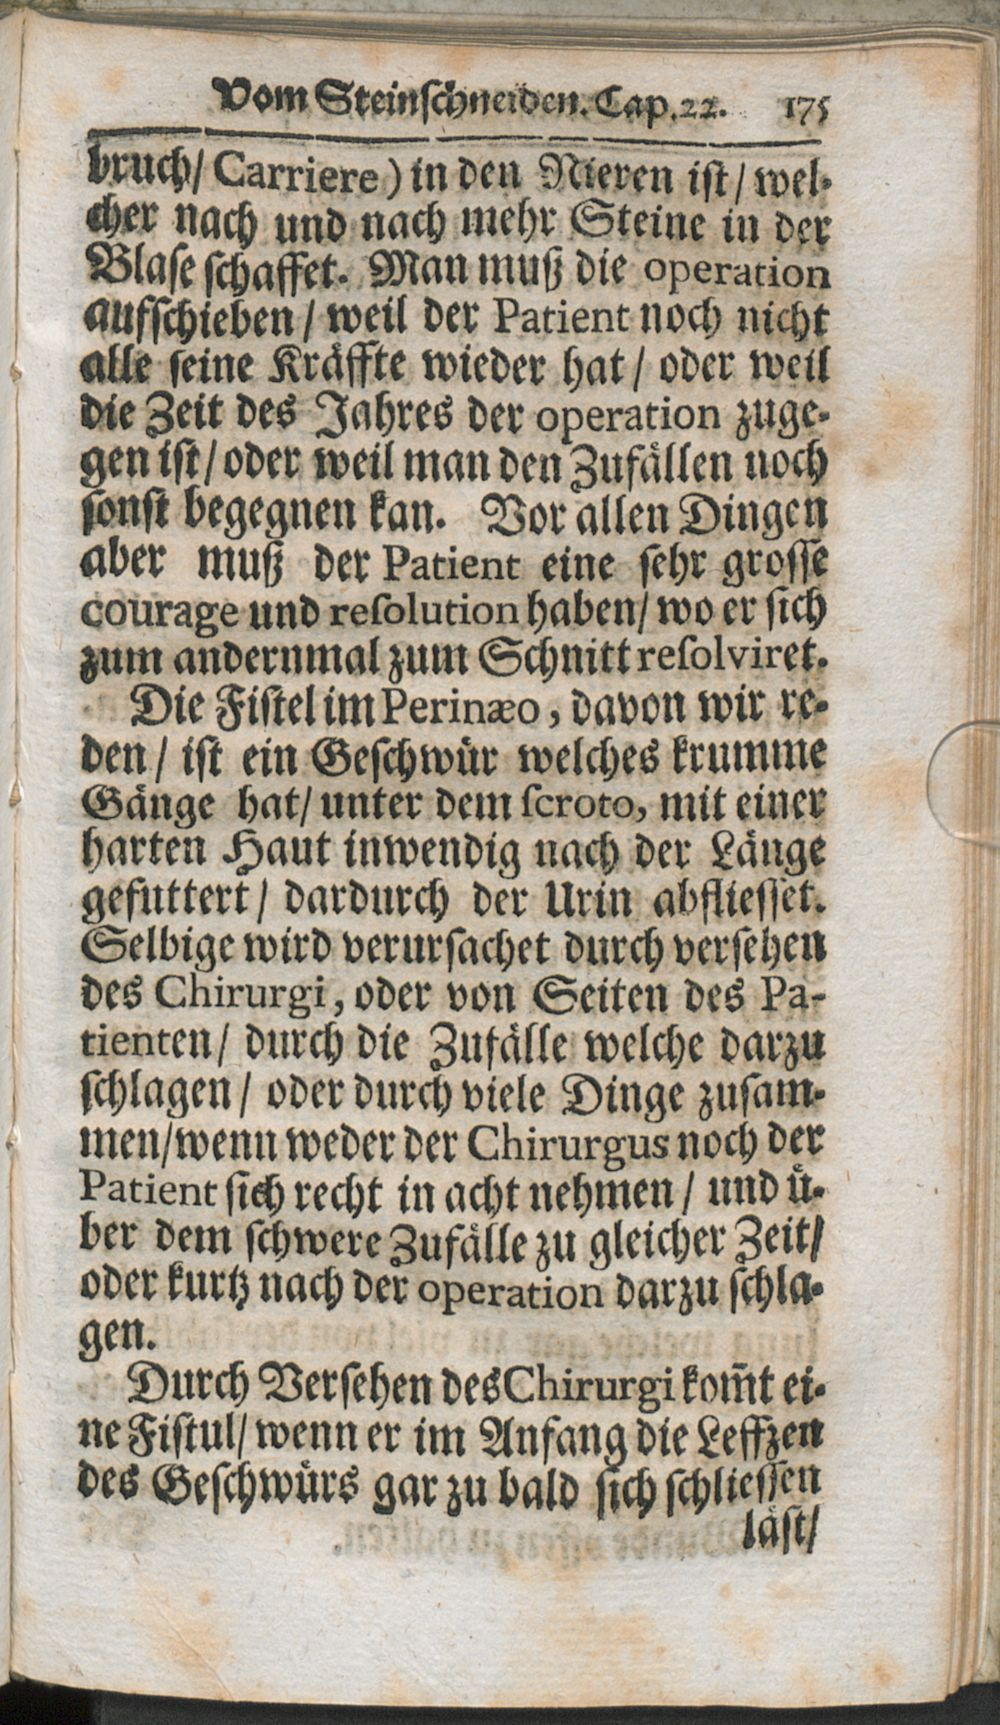 Vom Steinschneiden. Cap. 22. 175
bruch/ Carriere) in den Nieren ist/ wel-
cher nach und nach mehr Steine in der
Blase schaffet. Man muß die operation
aufschieben/ weil der Patient noch nicht
alle seine Kräffte wieder hat/ oder weil
die Zeit des Jahres der operation zuge-
gen ist/ oder weil man den Zufällen noch
sonst begegnen kan. Vor allen Dingen
aber muß der Patient eine sehr grosse
courage und resolution haben/ wo er sich
zum andernmal zum Schnitt resolviret.
Die Fistel im Perinæo, davon wir re-
den/ ist ein Geschwür welches krumme
Gänge hat/ unter dem scroto, mit einer
harten Haut inwendig nach der Länge
gefuttert/ dardurch der Urin abfliesset.
Selbige wird verursachet durch versehen
des Chirurgi, oder von Seiten des Pa-
tienten/ durch die Zufälle welche darzu
schlagen/ oder durch viele Dinge zusam-
men/ wenn weder der Chirurgus noch der
Patient sich recht in acht nehmen/ und ü-
ber dem schwere Zufälle zu gleicher Zeit/
oder kurtz nach der operation darzu schla-
gen.
Durch Versehen des Chirurgi kom̃t ei-
ne Fistul/ wenn er im Anfang die Leffzen
des Geschwürs gar zu bald sich schliessen
läst/